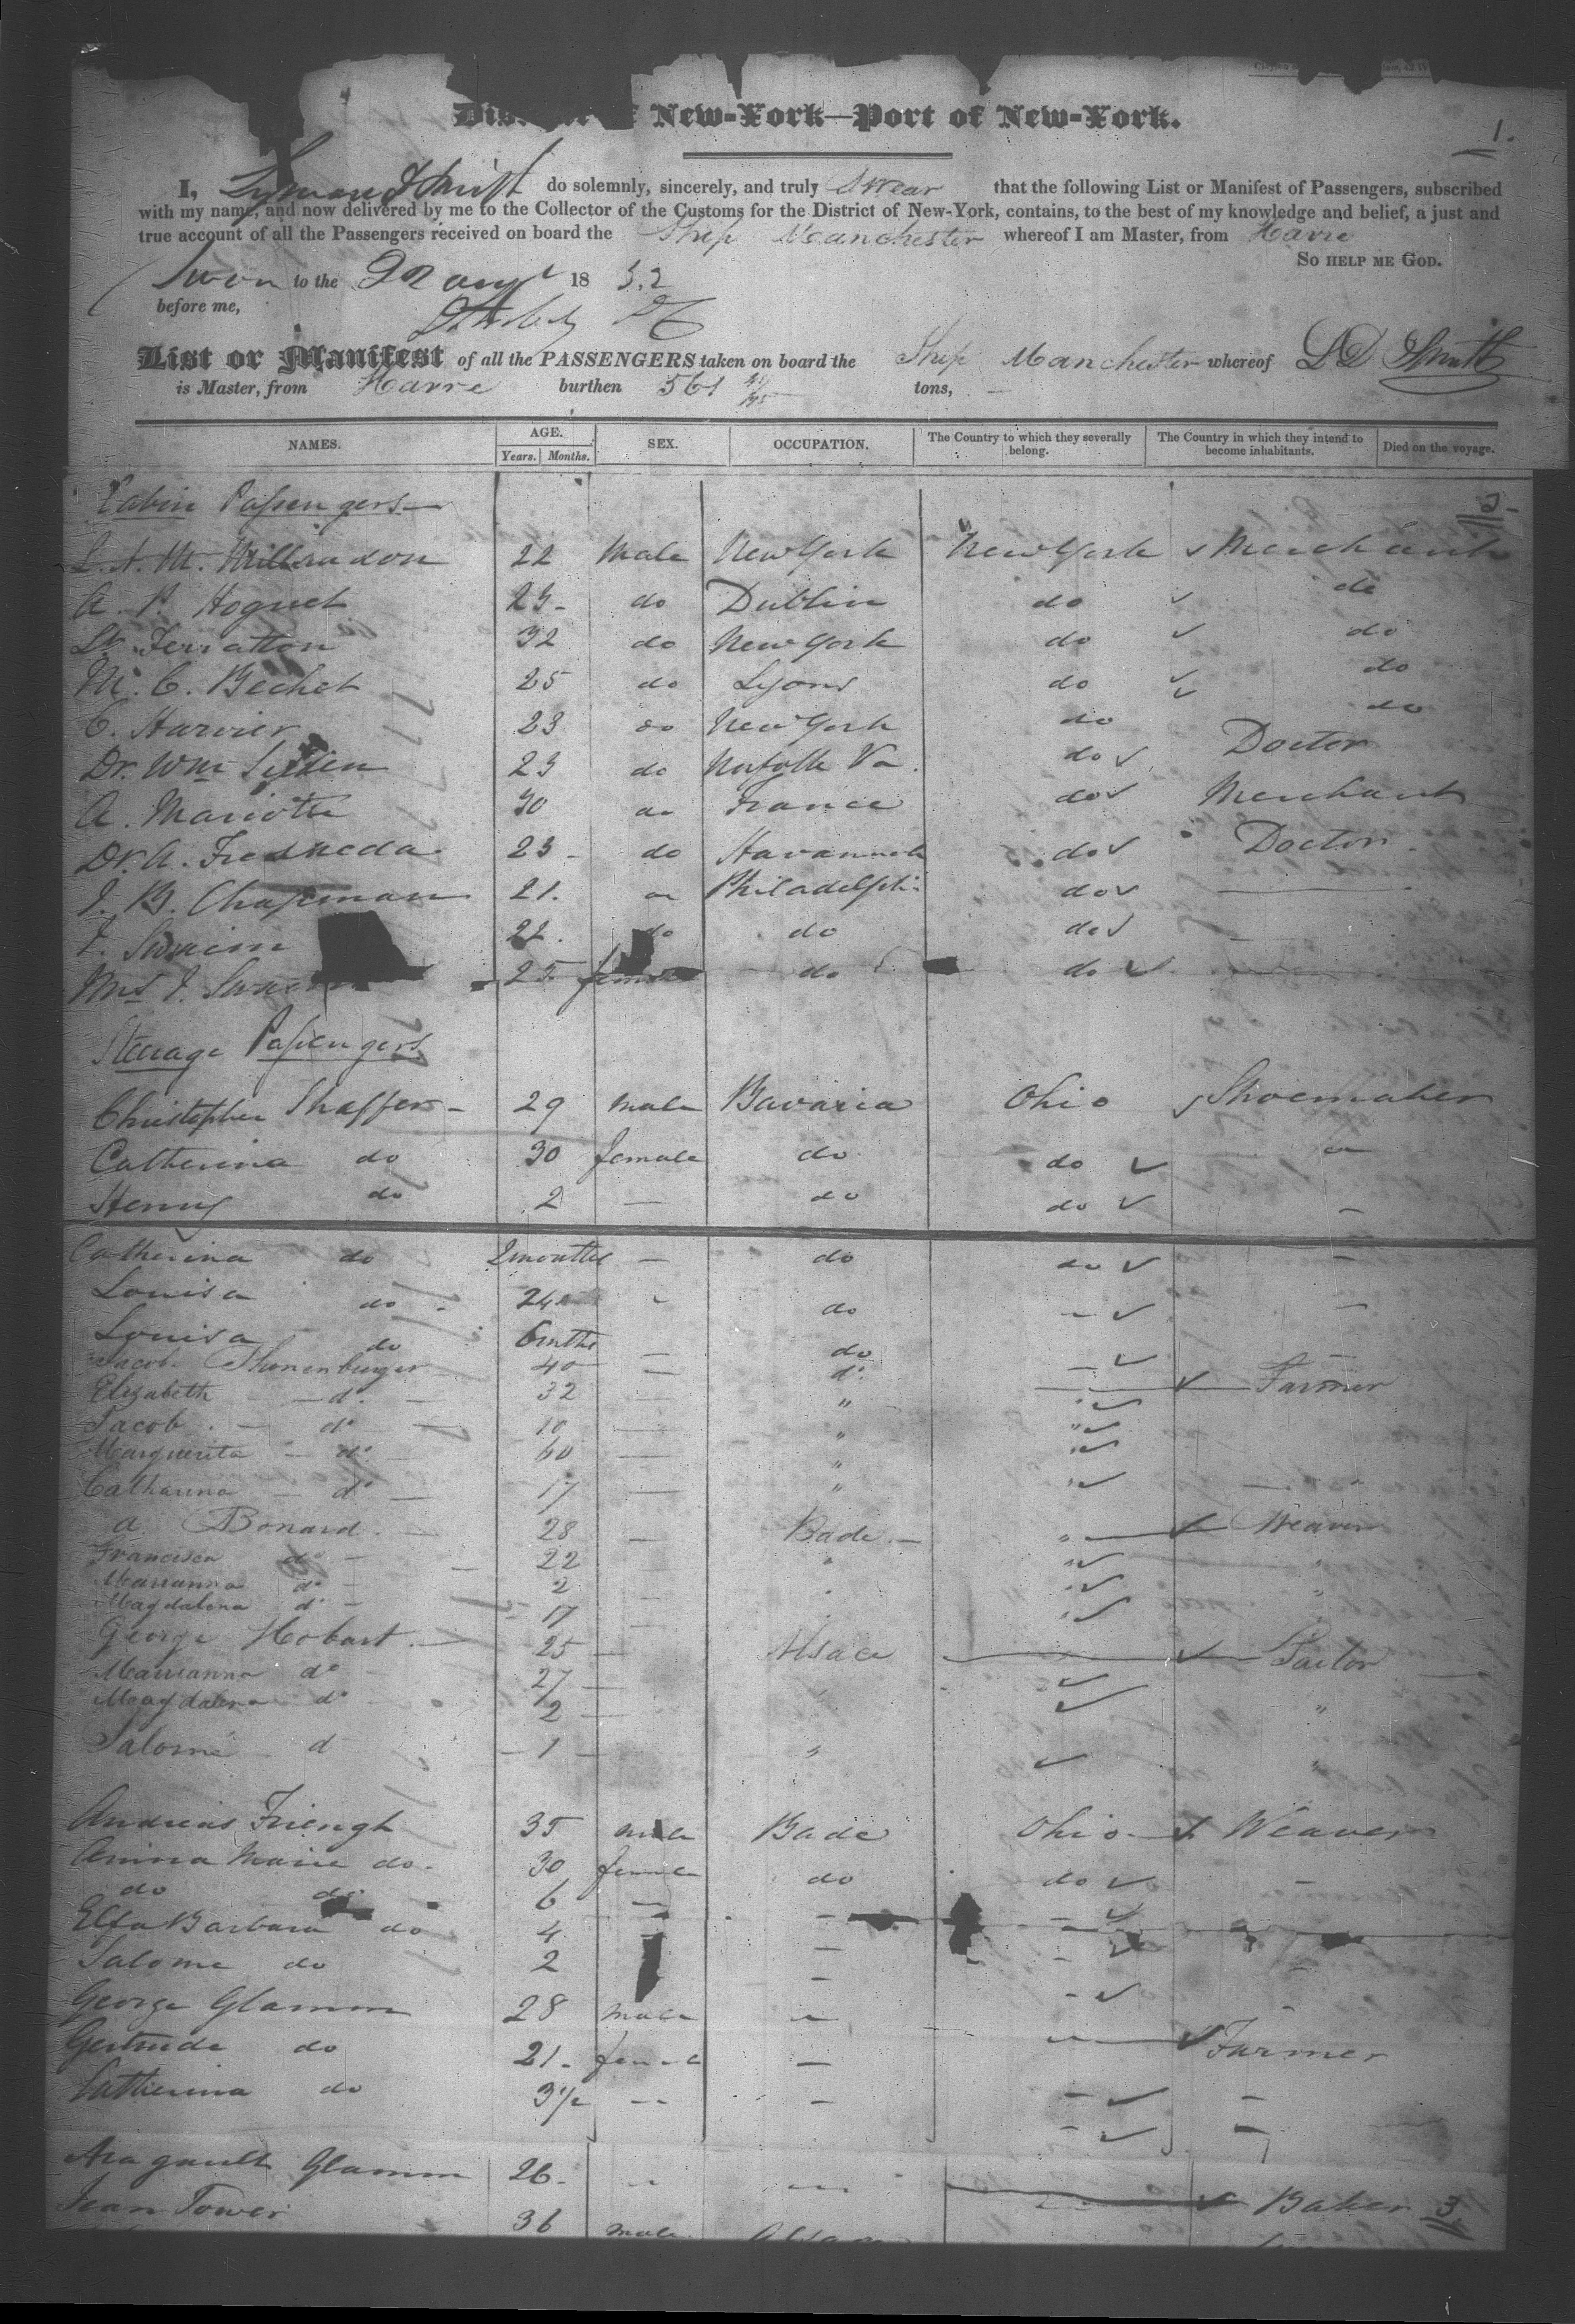 District of New-York—Port of New-York.
1.
I, Lyman D Smith do solemnly, sincerely, and truly Swear that the following List or Manifest of Passengers, subscribed
with my name, and now delivered by me to the Collector of the Customs for the District of New-York, contains, to the best of my knowledge and belief, a just and
true account of all the Passengers received on board the Ship Manchester whereof I am Master, from Havre
So help me God.
Sworn to the 22 augt 18 32
before me,
List or Manifest of all the PASSENGERS taken on board the Ship Manchester whereof L D Smith
is Master, from Havre burthen 561 tons,
NAMES. AGE. SEX. OCCUPATION. The Country to which they severally belong. The Country in which they intend to become inhabitants. Died on the voyage.
Years. Months.
Cabin Passengers 2
22 Male New York New York Merchant
A. P. Hoguet 23 do Dublin do do
32 do New York do do
M. C. Bechet 25 do Lyons do do
C. Harvier 23 do New York do do
Dr. Wm 23 do Norfolk Va. do Doctor
A. Mariotte 30 do France do Merchant
Dr. A. Fresneda 23 do Havannah do Doctor
J. B. Chapman 21. do Philadelphia do —
J. Swaim 22. do do do —
Mrs J. Swaim 25 female do do
Steerage Passengers
Christopher Shaffer 29 male Bavaria Ohio Shoemaker
Catherina do 30 female do do
Henry do 2 — do do —
Catherina do 2 months — do do —
Louisa do 24 - do - —
Louisa do 6 mths — do — —
Jacob 40 — do — Farmer
Elizabeth — do. — 32 — "
Jacob. — do — 10 — " "
Marguerita — do. 60 — " "
Catharina — do — 17 — " "
A. Bonard. — 28 — Bade — " Weaver
Francisca do — 22 " " "
Marianna do — 2 " " "
Magdalena do — 17 — " "
George Hobart. — 25 — Alsace — Tailor
Marianna do 27 — "
Magdalena do 2 — " "
Salomé d 1 — " "
Andreas 35 male Bade Ohio Weaver
Anna Marie do. 30 female do do —
do do 6 — — —
Barbara do 4 — — —
Salome do 2 — — —
George Glamm 28 male — — Farmer
Gertrude do 21. female — — —
Catherina do 3 1/2 — — — —
Glamm 26. — — Baker 3
Jean Tower 36 male Alsace